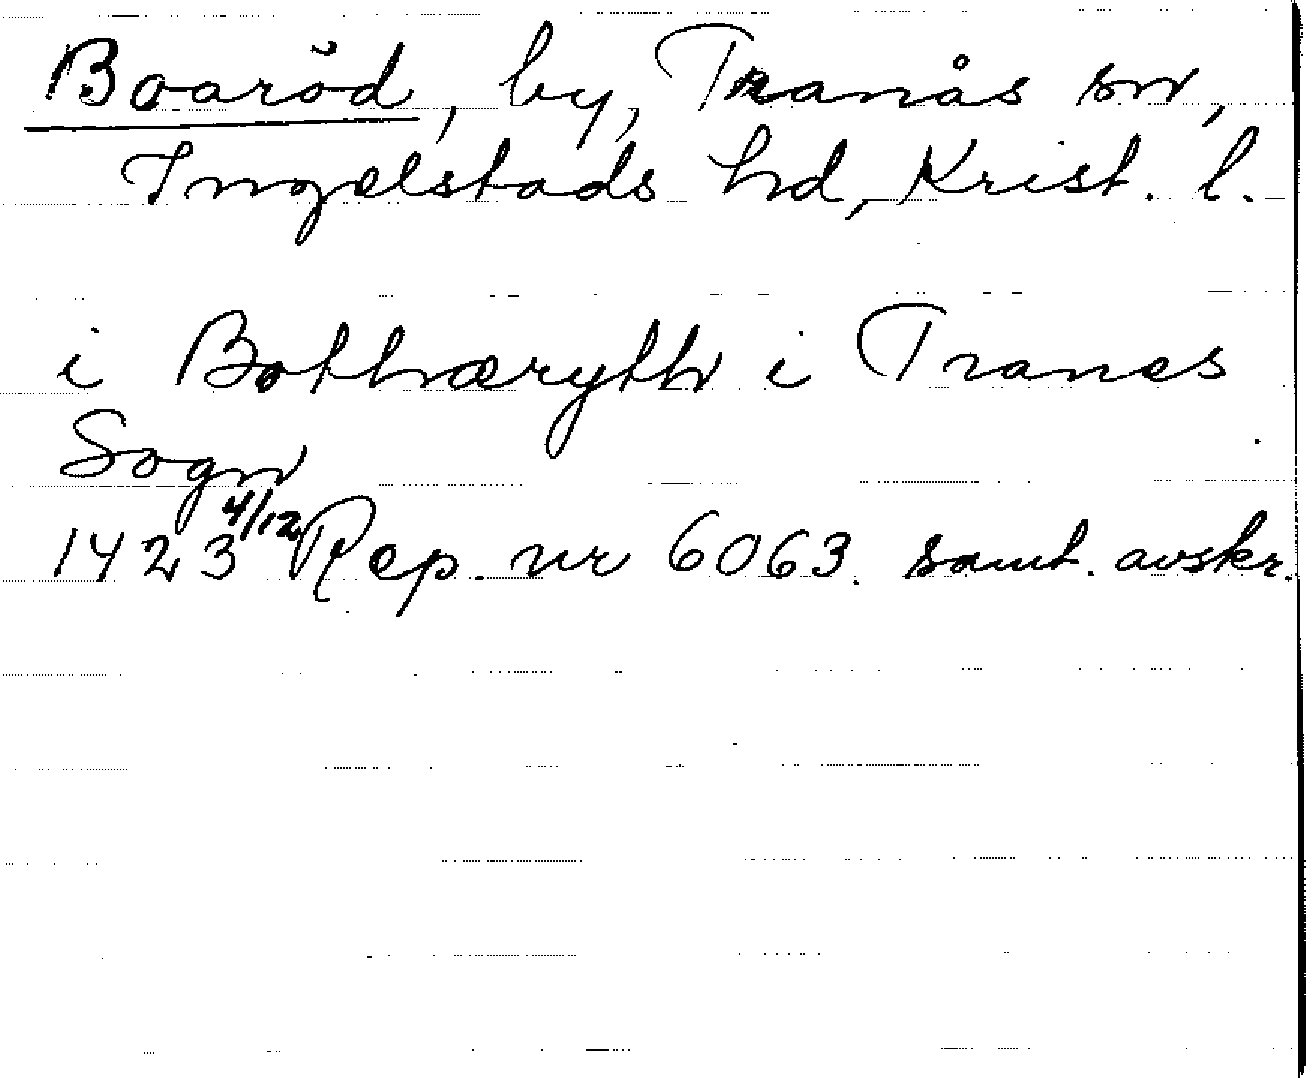 Boaröd, by, Tranås sn,
Ingelstads hd, Krist. l.
i Bothæryth i Tranes
Sogn
1423 4/12 Rep. nr 6063. samt. avskr.